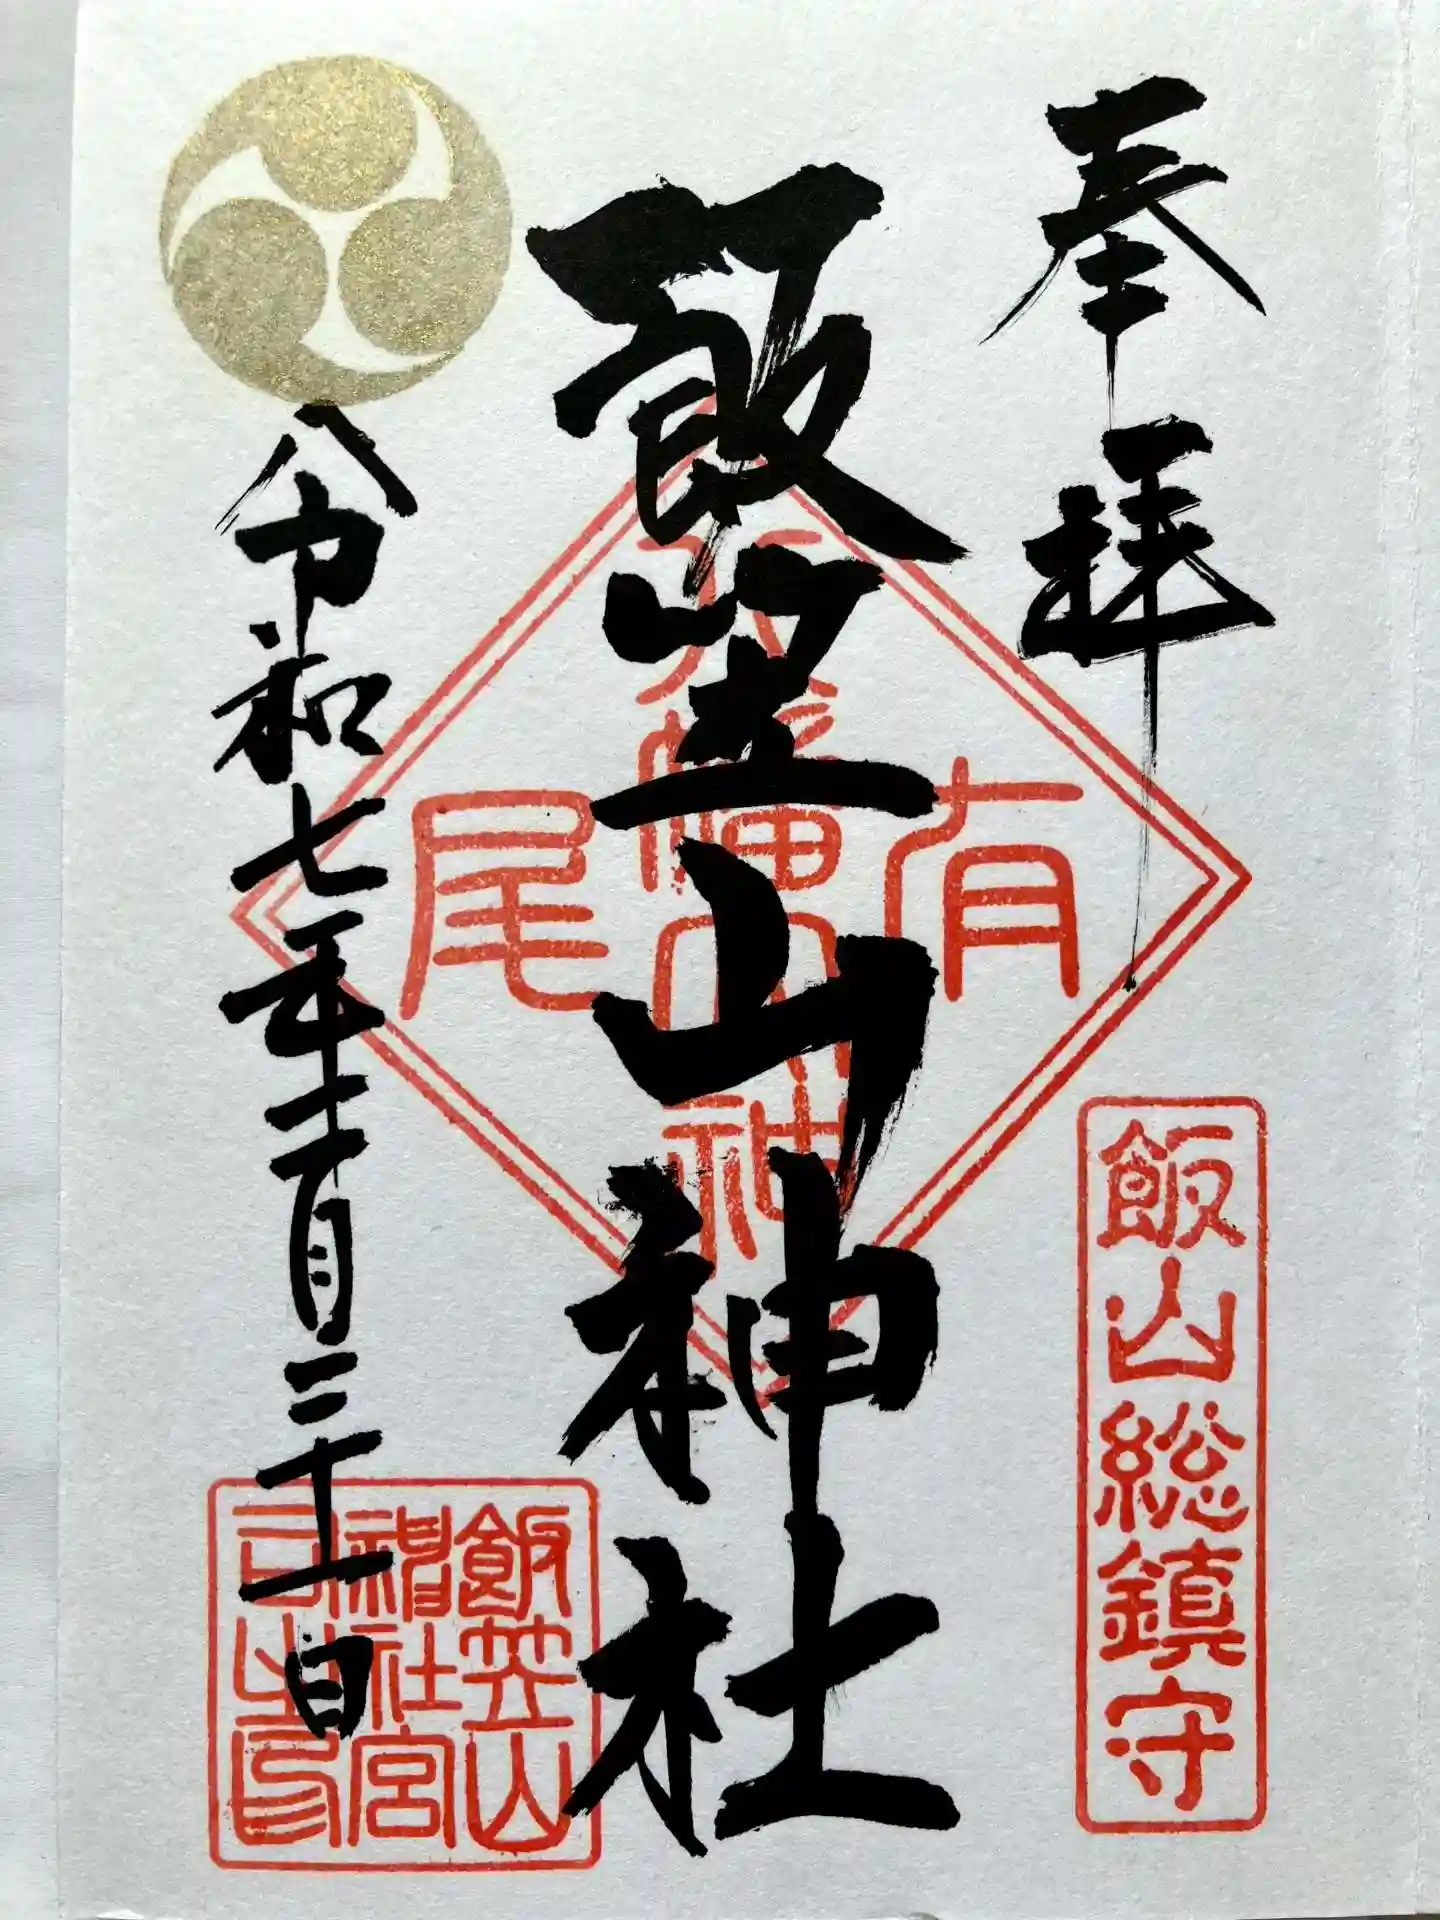 奉拝
飯山総鎮守
飯笠山神社
有尾
八幡大神
令和七年十二月三十一日
飯笠山
神社宮
司之印